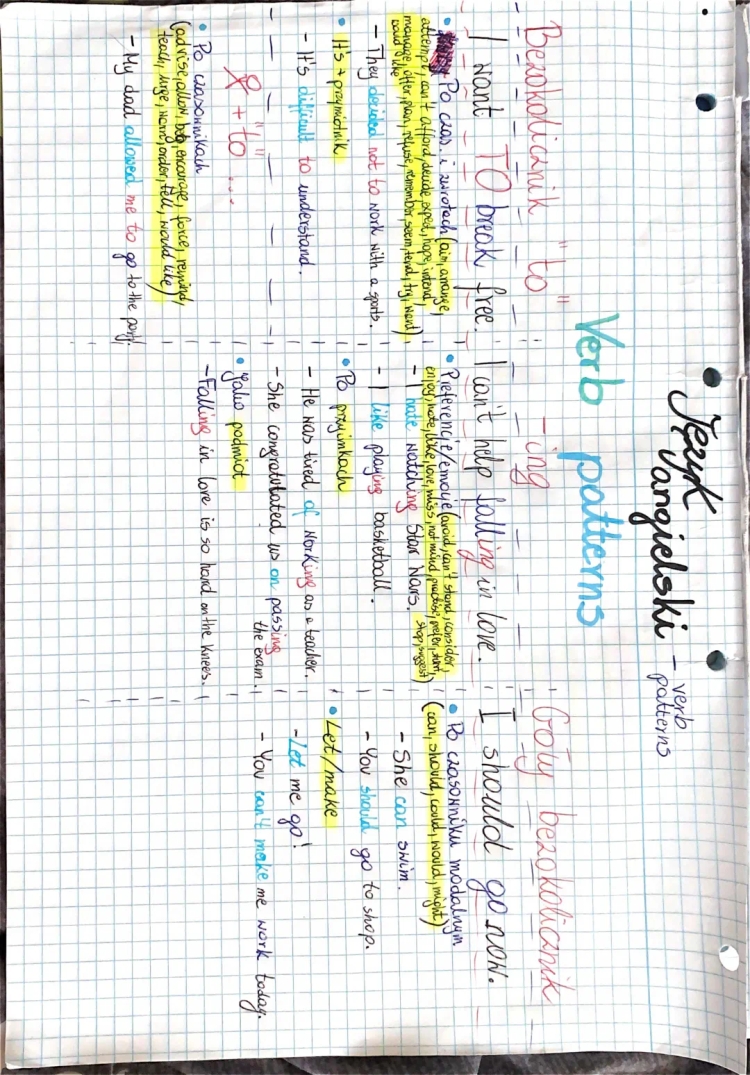 Język angielski - verb patterns
Verb patterns
Bezokolicznik "to"
I want TO break free.
• Po czas. i zwrotach (aim, arrange,
attempt, can't afford, decide, expect, hope, intend,
manage, offer, plan, refuse, remember, seem, tend, try, want),
would like
- They decided not to work with a sports.
• It's + przymiotnik
- It's difficult to understand.
+ "to" ...
• Po czasownikach
(advise, allow, beg, encourage, force, remind,
teach, urge, warn, order, tell, would like)
- My dad allowed me to go to the party.
-ing
I can't help falling in love.
• Preferencje/emocje (avoid, can't stand, consider,
enjoy, hate, like, love, miss, not mind, practise, prefer,
stop, suggest)
- I hate watching Star Wars.
- I like playing basketball.
• Po przyimkach
- He was tired of working as a teacher.
- She congratulated us on passing
the exam.
• Jako podmiot
- Falling in love is so hard on the knees.
Goły bezokolicznik
I should go now.
• Po czasowniku modalnym
(can, should, could, would, might)
- She can swim.
- You should go to shop.
• Let/make
- Let me go!
- You can't make me work today.